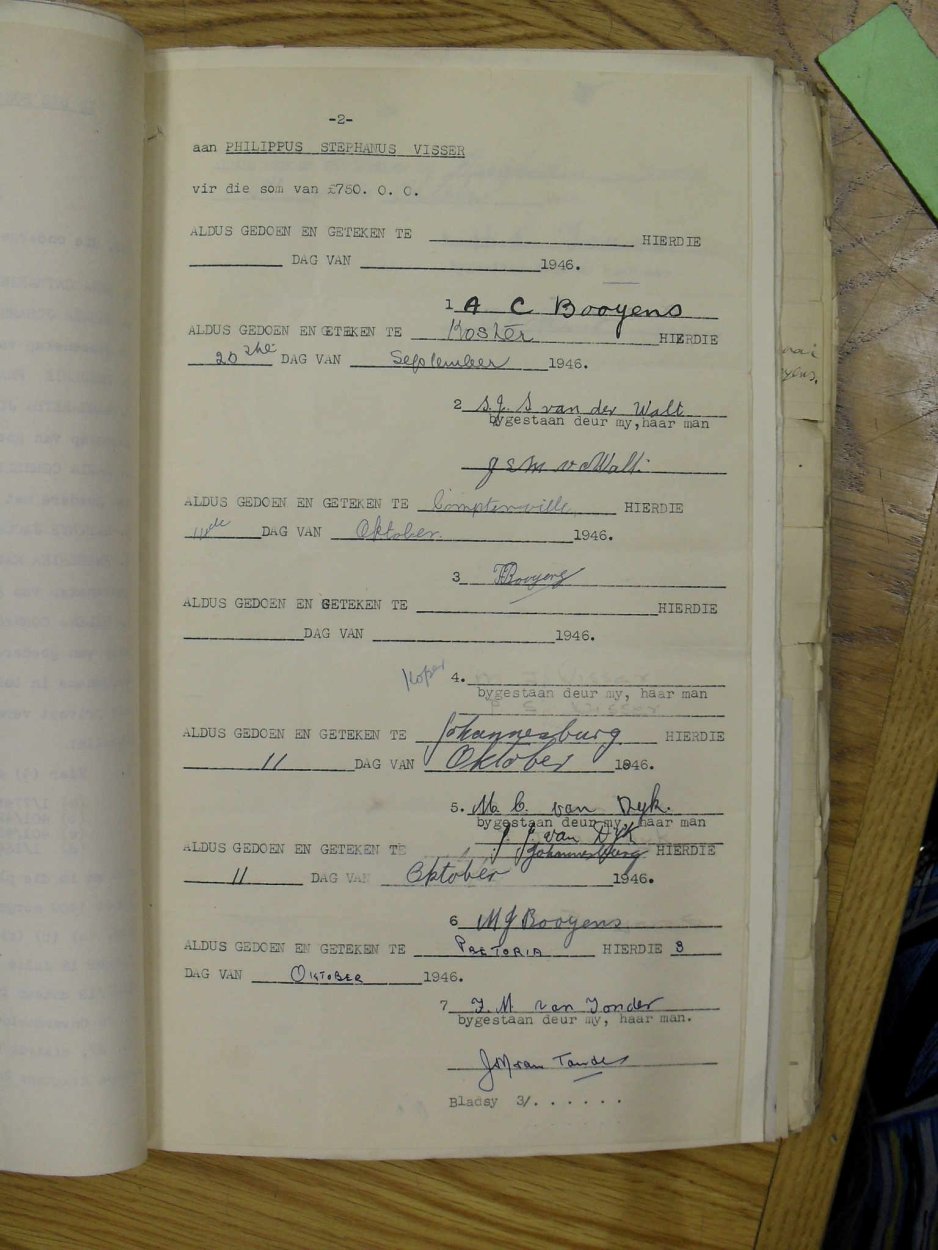 -2-
aan PHILIPPUS STEPHANUS VISSER
vir die som van £750. 0. 0.
ALDUS GEDOEN EN GETEKEN TE HIERDIE
DAG VAN 1946.
1 A C Booyens
ALDUS GEDOEN EN GETEKEN TE Koster HIERDIE
20ste DAG VAN September 1946.
2 S. J. S van der Walt
bygestaan deur my, haar man
J S M v d Walt.
ALDUS GEDOEN EN GETEKEN TE HIERDIE
11de DAG VAN Oktober 1946.
3 Booyens
ALDUS GEDOEN EN GETEKEN TE HIERDIE
DAG VAN 1946.
Koper 4.
bygestaan deur my, haar man
ALDUS GEDOEN EN GETEKEN TE Johannesburg HIERDIE
11 DAG VAN Oktober 1946.
5. M. C. van Dyk.
bygestaan deur my, haar man
J. J. van Dyk
ALDUS GEDOEN EN GETEKEN TE Johannesburg HIERDIE
11 DAG VAN Oktober 1946.
6 M J Booyens
ALDUS GEDOEN EN GETEKEN TE PRETORIA HIERDIE 8
DAG VAN OKTOBER 1946.
7 J. M. van Tonder
bygestaan deur my, haar man.
van Tonder
Bladsy 3/. . . . . .